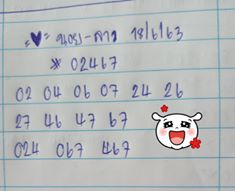 ฮานอย-ลาว 18/6/63
* 02467
02 04 06 07 24 26
27 46 47 67
024 067 467